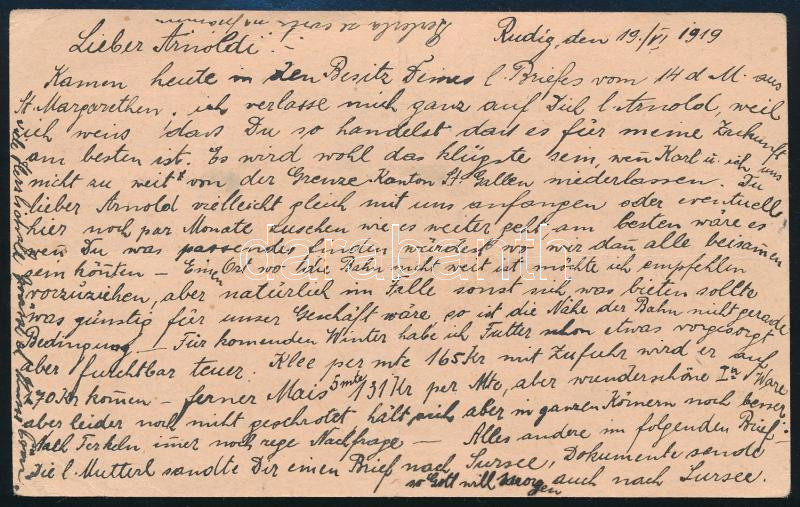 Rudig, den 19./VI 1919
Lieber Arnoldi! –
Kamen heute in den Besitz Deines l Briefes vom 14 d M. aus
St. Margarethen, ich verlasse mich ganz auf Dich l Arnold, weil
ich weis dass Du so handelst das es für meine Zukunft
am besten ist. Es wird wohl das klügste sein, wen̄ Karl u. ich uns
nicht zu weit von der Grenze Kanton St. Gallen niederlassen. Du
lieber Arnold vielleicht gleich mit uns anfangen oder eventuell
hier noch par Monate zuschen wie es weiter geht am besten wäre es
wen̄ Du was passendes finden würdest wo wir dan̄ alle beisam̄en
sein kön̄ten – Einen Ort wo die Bahn nicht weit ist möchte ich empfehlen
vorzuziehen, aber natürlich im Falle sonst sich was bieten sollte
was günstig für unser Geschäft wäre so ist die Nähe der Bahn nicht gerade
Bedingung – Für kom̄enden Winter habe ich Futter schon etwas vorgesorgt
aber furchtbar teuer. Klee per mte 165 Kr mit Zufuhr wird er auf
170 Kr kom̄en – ferner Mais 5 mte 131 Kr per Mte, aber wunderschöne Ia Ware
aber leider noch nicht geschrotet hält sich aber in ganzen Körnern noch besser.
Nach Ferkeln im̄er noch rege Nachfrage – Alles andere im folgenden Brief –
Die l. Mutterl sandte Dir einen Brief nach Sursee, Dokumente sende
so Gott will morgen auch nach Sursee.
darabanth.com